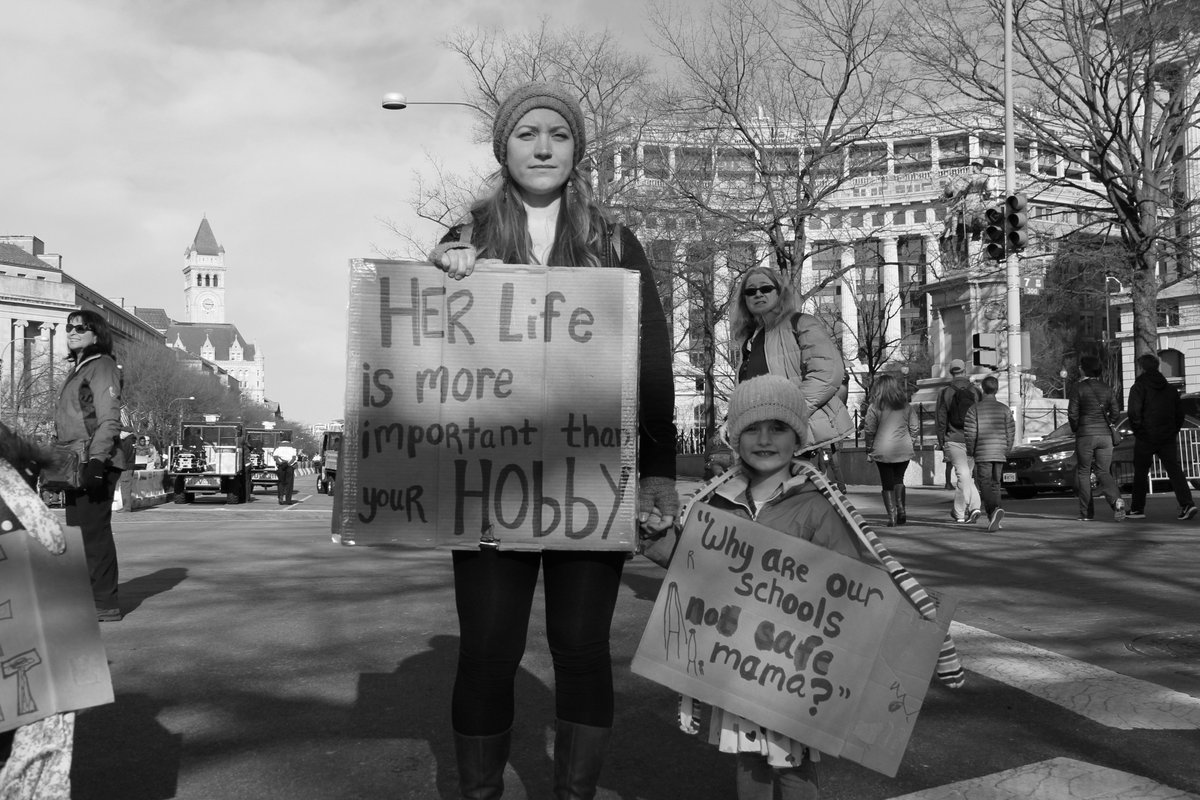 HER Life
is more
important than
your HOBBY
"Why are our
schools
not safe
mama?"